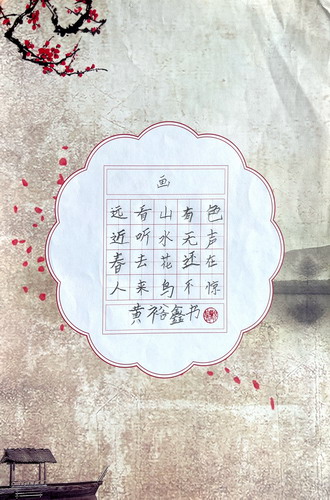 画
远看山有色
近听水无声
春去花还在
人来鸟不惊
黄裕鑫书